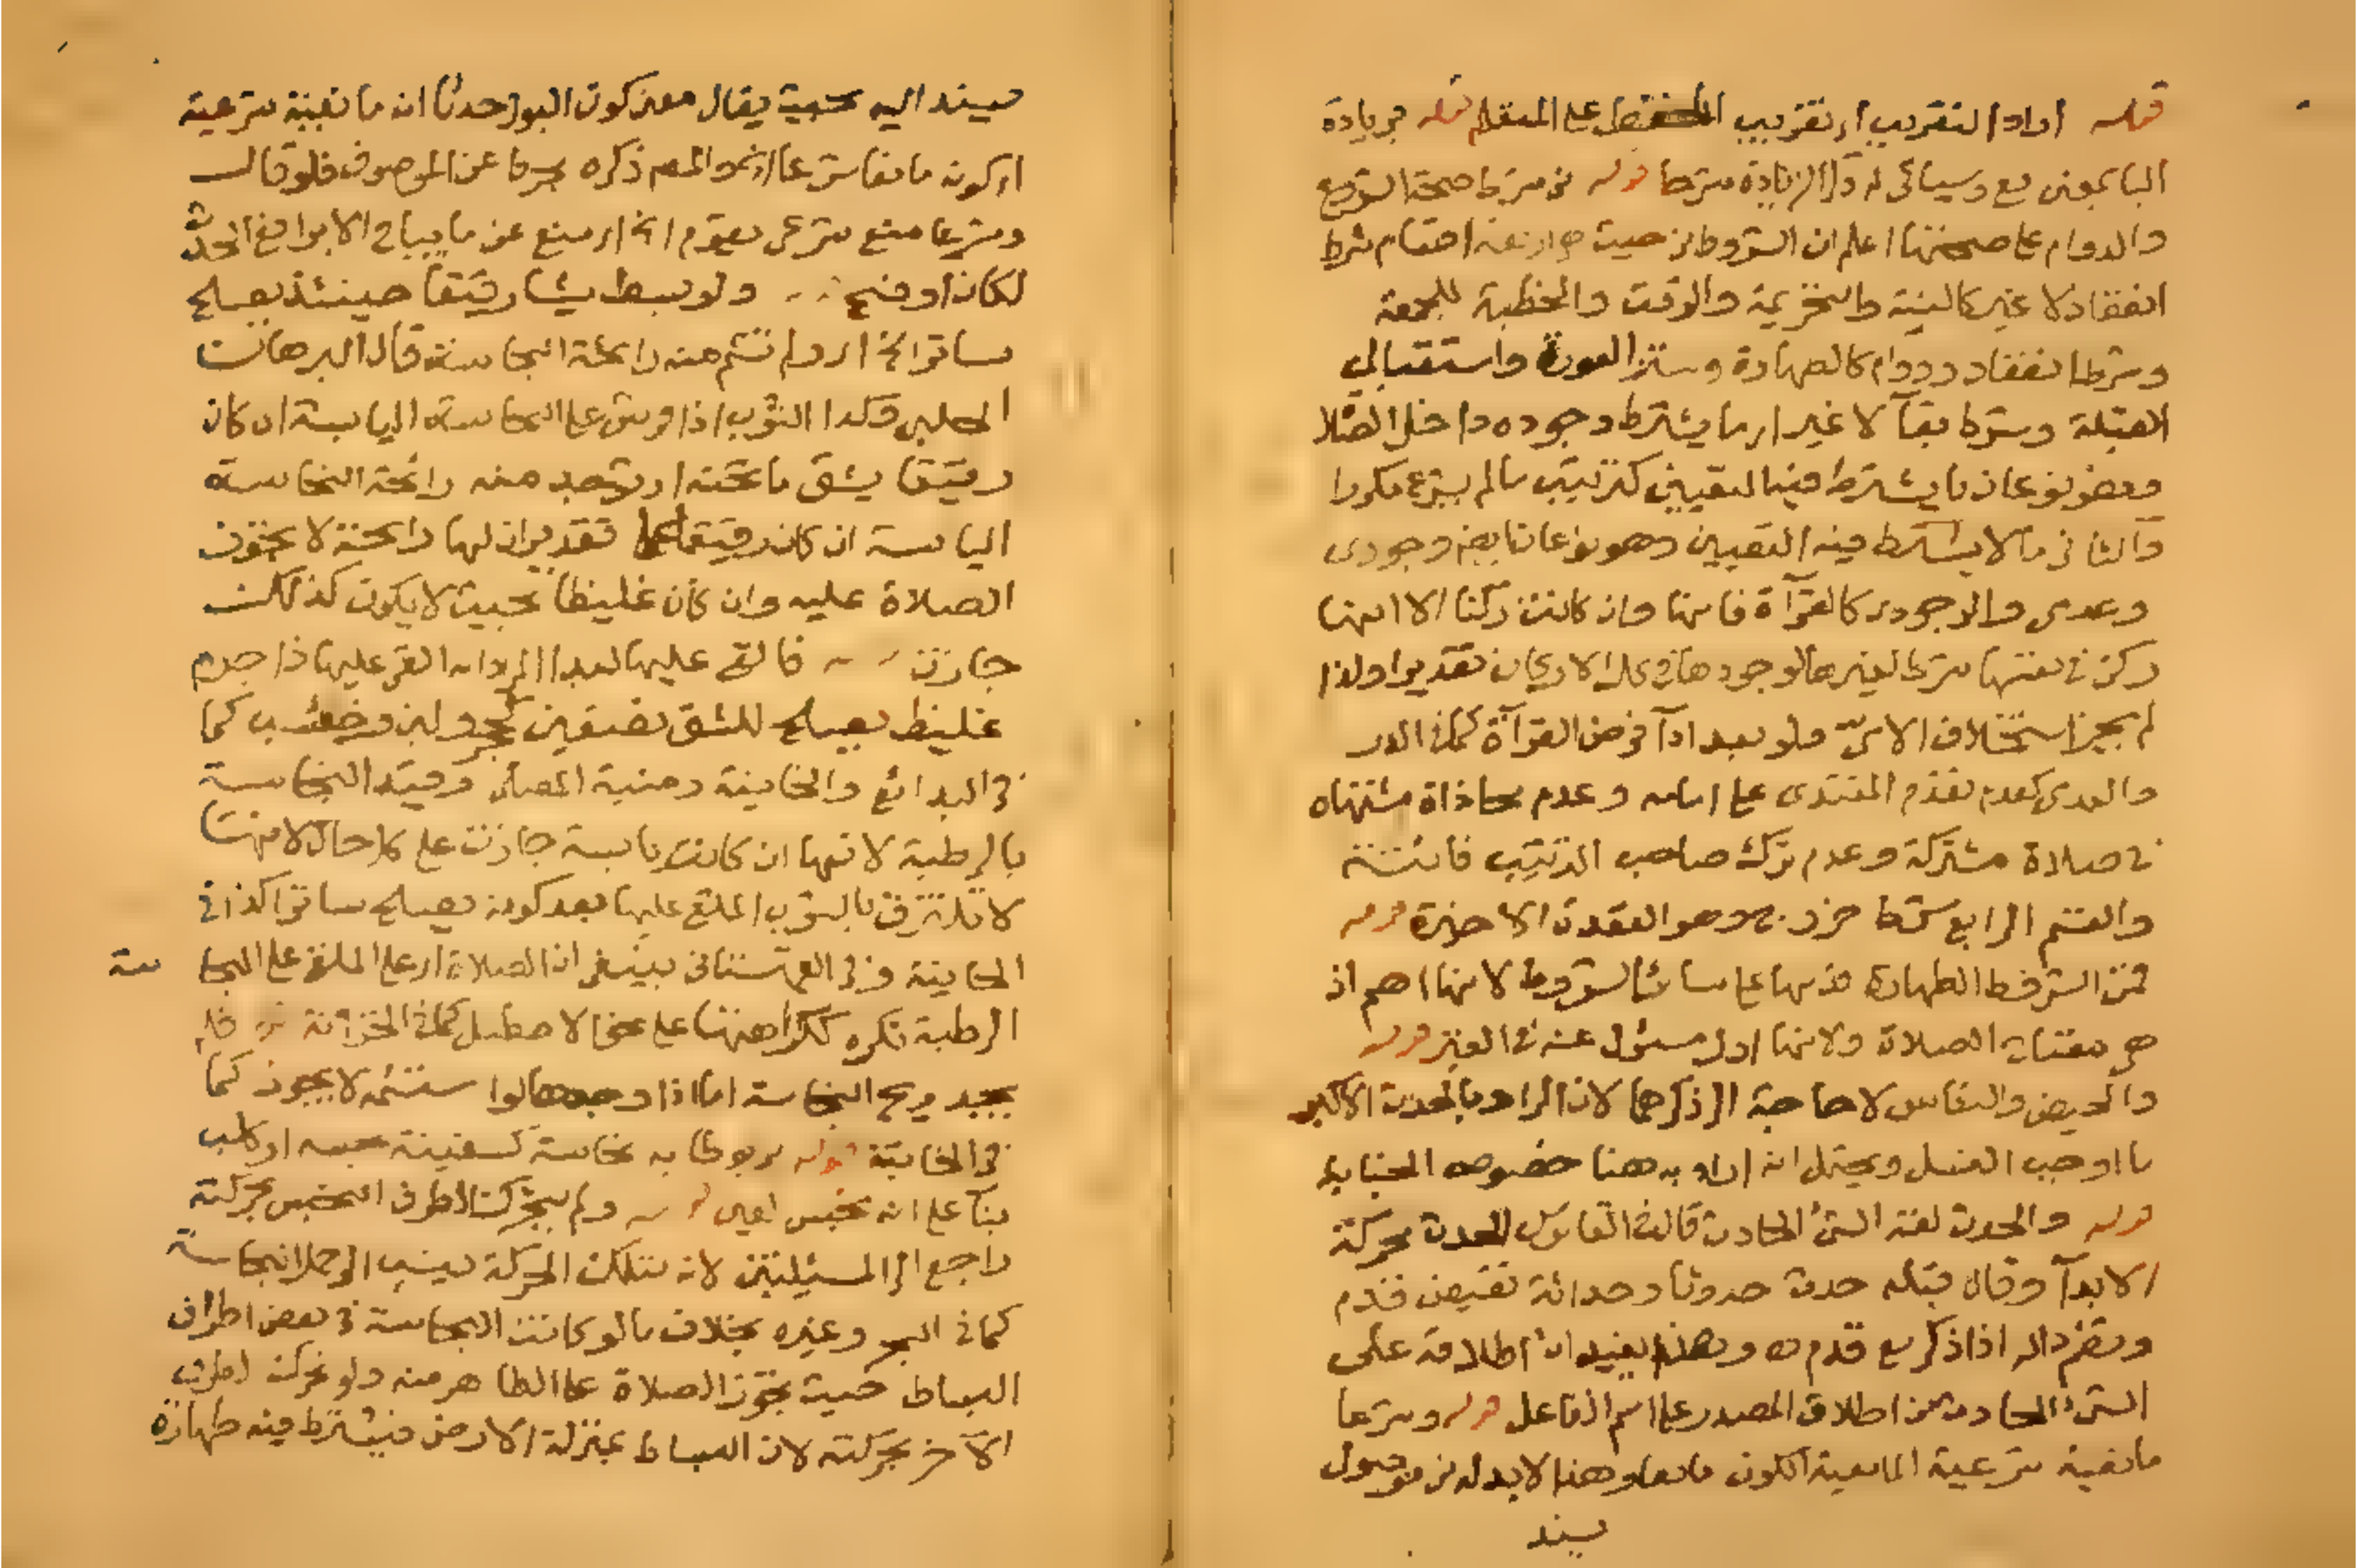 قوله اراد التقريب اى تقريب الحفظ على المتعلم قوله بزيادة
البا بمعنى مع وسياتى له الزيادة شرحا قوله من شرط صحة الشروع
والدوام على صحتها اعلم ان الشروط من حيث هى اربعة اقسام شرط
انعقاد لا غير كالنية والتحريمة والوقت والخطبة للجمعة
وشرط انعقاد ودوام كالطهارة وستر العورة واستقبال
القبلة وشرط بقآ لا غير اى ما يشترط وجوده داخل الصلا
وهو نوعان ما يشترط فيه التعيين كترتيب ما لم يشرع مكررا
والثانى ما لا يشترط فيه التعيين وهو نوعان ايضا وجودى
وعدمى والوجودى كالقرآة فانها وان كانت ركنا الا انها
ركن فى نفسها شرط لغيرها لوجودها فى كل الاركان تقديرا ولذا
لم يجز استخلاف الامى ولو بعد ادآ فرض القرآة كما فى الدر
والعدمى كعدم تقدم المقتدى على امامه وعدم محاذاة مشتهاه
فى صلاة مشتركة وعدم ترك صاحب الترتيب فائتة
والقسم الرابع شرط خروج وهو القعدة الاخيرة قوله
فمن الشروط الطهارة قدمها على سائر الشروط لانها اهم اذ
هى مفتاح الصلاة ولانها اول مسئول عنه فى القبر قوله
والحيض والنفاس لا حاجة الى ذكرهما لان المراد بالحدث الاكبر
ما اوجب الغسل ويحتمل انه اراد به هنا خصوص الجنابة
قوله والحدث لغة الشئ الحادث قال فى القاموس الحدث محركة
الابدآ وقال قبله حدث حدوثا وحداثة نقيض قدم
وتضم داله اذا ذكر مع قدم وهذا يفيد ان اطلاقه على
الشئ الحادث من اطلاق المصدر على اسم الفاعل قوله وشرعا
مانعية شرعية المانعية الكون مانعا وهذا لا بد له من موصول
يسند
يسند اليه بحيث يقال معنى كون البول حدثا انه مانعية شرعية
اى كونه مانعا شرعا الخ والمص ذكره مجردا عن الموصوف فلو قال
وشرعا منع شرعى يقوم الخ اى منع عن ما يباح الا برافع الحدث
لكان اوضح ولو بسط شيئا رقيقا حينئذ يصلح
ساترا الخ اى ولم تشم منه رائحة النجاسة قال البرهان
الحلبى وكذا الثوب اذا فرش على النجاسة اليابسة ان كان
رقيقا يشف ما تحته او توجد منه رائحة النجاسة
اليابسة ان كان رقيقا على تقدير ان لها رائحة لا يجوز
الصلاة عليه وان كان غليظا بحيث لا يكون كذلك
جازت فالقى عليها لبدا المراد انه القى عليها ذا جرم
غليظ يصلح للشق نصفين كحجر ولبن وخشب كما
فى البدائع والخانية ومنية المصلى وقيد النجاسة
بالرطبة لانها ان كانت يابسة جازت على كل حال لانها
لا تلتزق بالثوب الملقى عليها بعد كونه يصلح ساترا كذا فى
الخانية وفى القهستانى ينبغى ان الصلاة اى على الملقى على النجا سة
الرطبة تكره ككراهتها على نحو الاصطبل كما فى الخزانة قوله فلم
يجد ريح النجاسة اما اذا وجدها لو استشمه لا يجوز كما
فى الخانية قوله مربوطا به نجاسة كسفينة نجسه او كلب
بنآ على انه نجس العين قوله ولم يتحرك الطرف النجس بحركته
راجع الى المسئلتين لانه بتلك الحركة ينسب الى حمل النجاسة
كما فى البحر وغيره بخلاف ما لو كانت النجاسة فى بعض اطراف
البساط حيث تجوز الصلاة على الطاهر منه ولو تحرك الطرف
الآخر بحركته لان البساط بمنزلة الارض فيشترط فيه طهارة